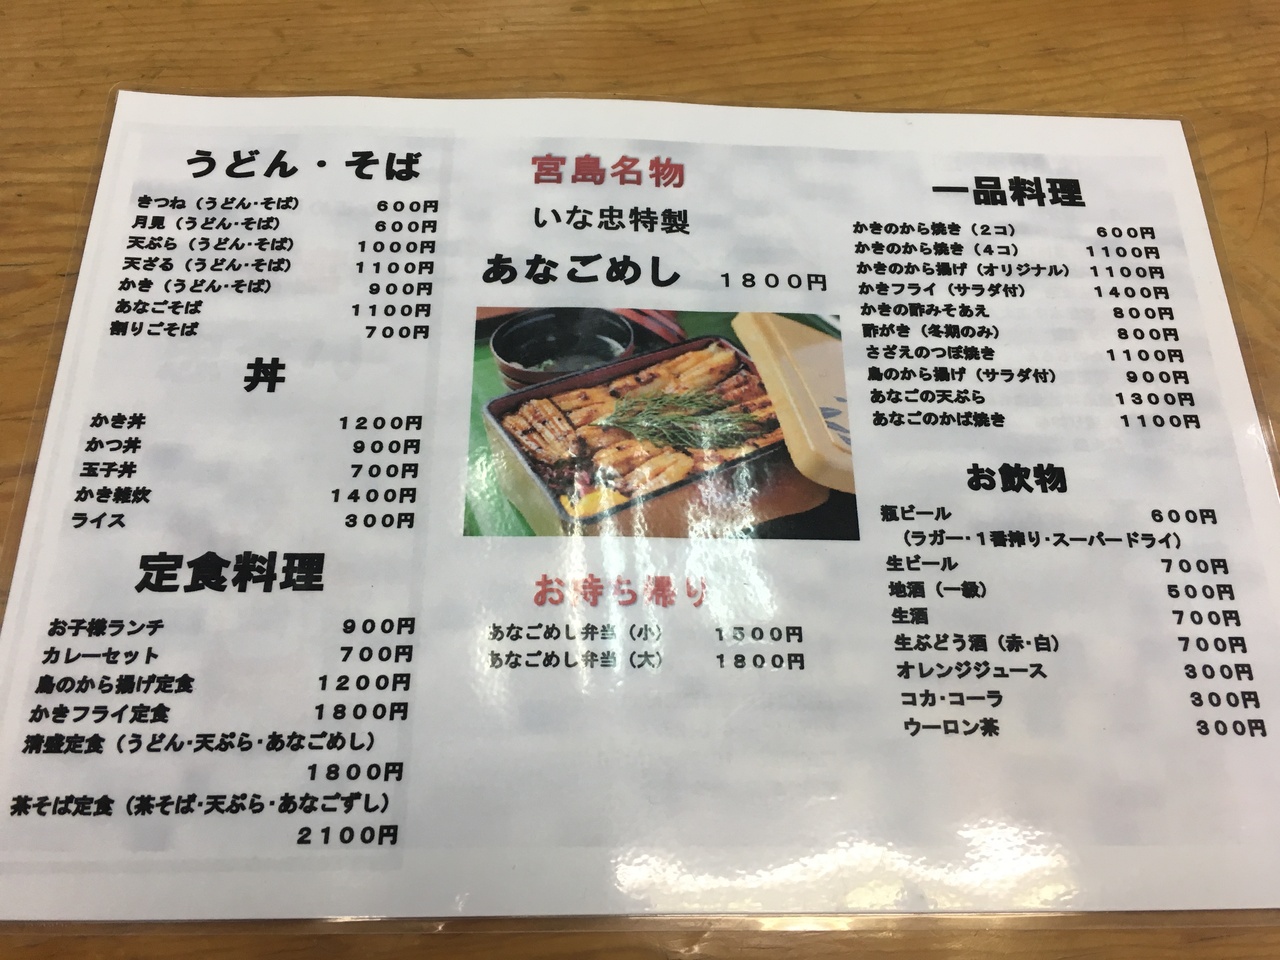 うどん・そば
きつね（うどん･そば） 600円
月見（うどん･そば） 600円
天ぷら（うどん･そば） 1000円
天ざる（うどん･そば） 1100円
かき（うどん･そば） 900円
あなごそば 1100円
割りごそば 700円
丼
かき丼 1200円
かつ丼 900円
玉子丼 700円
かき雑炊 1400円
ライス 300円
定食料理
お子様ランチ 900円
カレーセット 700円
鳥のから揚げ定食 1200円
かきフライ定食 1800円
清盛定食（うどん･天ぷら･あなごめし）
1800円
茶そば定食（茶そば･天ぷら･あなごずし）
2100円
宮島名物
いな忠特製
あなごめし 1800円
お持ち帰り
あなごめし弁当（小） 1500円
あなごめし弁当（大） 1800円
一品料理
かきのから焼き（2コ） 600円
かきのから焼き（4コ） 1100円
かきのから揚げ（オリジナル） 1100円
かきフライ（サラダ付） 1400円
かきの酢みそあえ 800円
酢がき（冬期のみ） 800円
さざえのつぼ焼き 1100円
鳥のから揚げ（サラダ付） 900円
あなごの天ぷら 1300円
あなごのかば焼き 1100円
お飲物
瓶ビール 600円
（ラガー･1番搾り･スーパードライ）
生ビール 700円
地酒（一級） 500円
生酒 700円
生ぶどう酒（赤･白） 700円
オレンジジュース 300円
コカ･コーラ 300円
ウーロン茶 300円